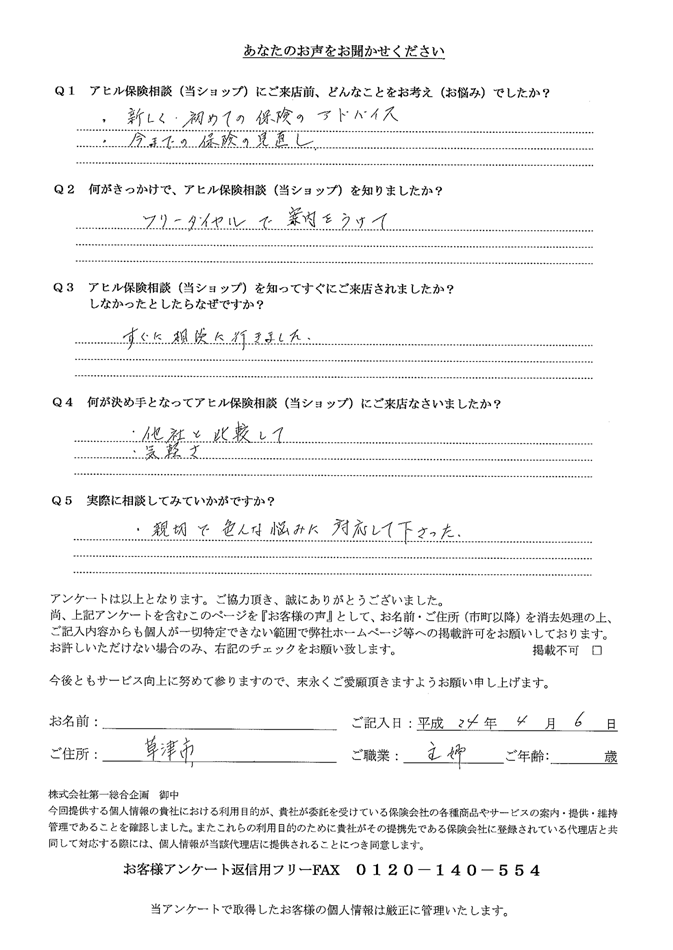 あなたのお声をお聞かせください
Q1 アヒル保険相談(当ショップ)にご来店前、どんなことをお考え(お悩み)でしたか?
・新しく・初めての保険のアドバイス
・今までの保険の見直し
Q2 何がきっかけで、アヒル保険相談(当ショップ)を知りましたか?
フリーダイヤルで案内をうけて
Q3 アヒル保険相談(当ショップ)を知ってすぐにご来店されましたか?
しなかったとしたらなぜですか?
すぐに相談に行きました.
Q4 何が決め手となってアヒル保険相談(当ショップ)にご来店なさいましたか?
・他社と比較して
・気軽さ
Q5 実際に相談してみていかがですか?
・親切で色んな悩みに対応して下さった.
アンケートは以上となります。ご協力頂き、誠にありがとうございました。
尚、上記アンケートを含むこのページを『お客様の声』として、お名前・ご住所(市町以降)を消去処理の上、
ご記入内容からも個人が一切特定できない範囲で弊社ホームページ等への掲載許可をお願いしております。
お許しいただけない場合のみ、右記のチェックをお願い致します。 掲載不可 □
今後ともサービス向上に努めて参りますので、末永くご愛顧頂きますようお願い申し上げます。
お名前: ご記入日:平成 24 年 4 月 6 日
ご住所: 草津市 ご職業: 主婦 ご年齢: 歳
株式会社第一総合企画 御中
今回提供する個人情報の貴社における利用目的が、貴社が委託を受けている保険会社の各種商品やサービスの案内・提供・維持
管理であることを確認しました。またこれらの利用目的のために貴社がその提携先である保険会社に登録されている代理店と共
同して対応する際には、個人情報が当該代理店に提供されることにつき同意します。
お客様アンケート返信用フリーFAX 0120-140-554
当アンケートで取得したお客様の個人情報は厳正に管理いたします。